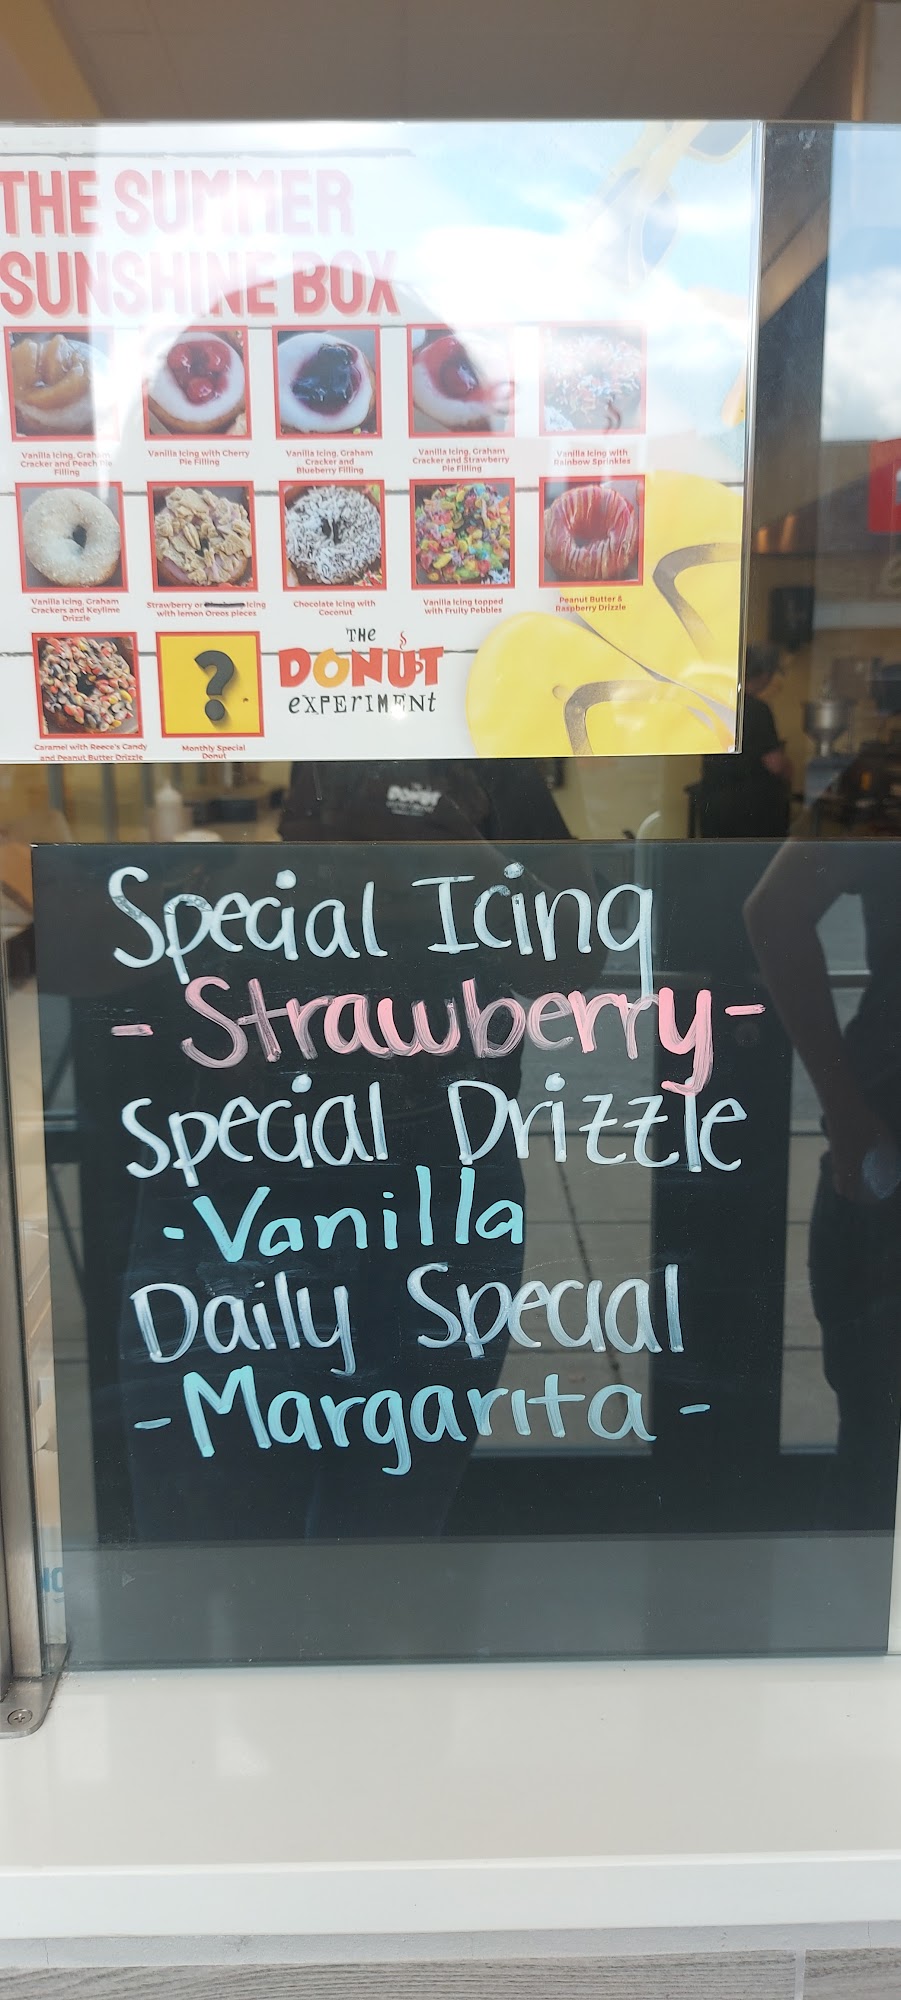 THE SUMMER
SUNSHINE BOX
Vanilla Icing, Graham
Cracker and Peach Pie
Filling
Vanilla Icing with Cherry
Pie Filling
Vanilla Icing, Graham
Cracker and
Blueberry Filling
Vanilla Icing, Graham
Cracker and Strawberry
Pie Filling
Vanilla Icing with
Rainbow Sprinkles
Vanilla Icing, Graham
Crackers and Keylime
Drizzle
Strawberry or Icing
with lemon Oreos pieces
Chocolate Icing with
Coconut
Vanilla Icing topped
with Fruity Pebbles
Peanut Butter &
Raspberry Drizzle
Caramel with Reece's Candy
and Peanut Butter Drizzle
?
Monthly Special
Donut
THE
DONUT
EXPERIMENT
Special Icing
- Strawberry -
Special Drizzle
· Vanilla
Daily Special
- Margarita -